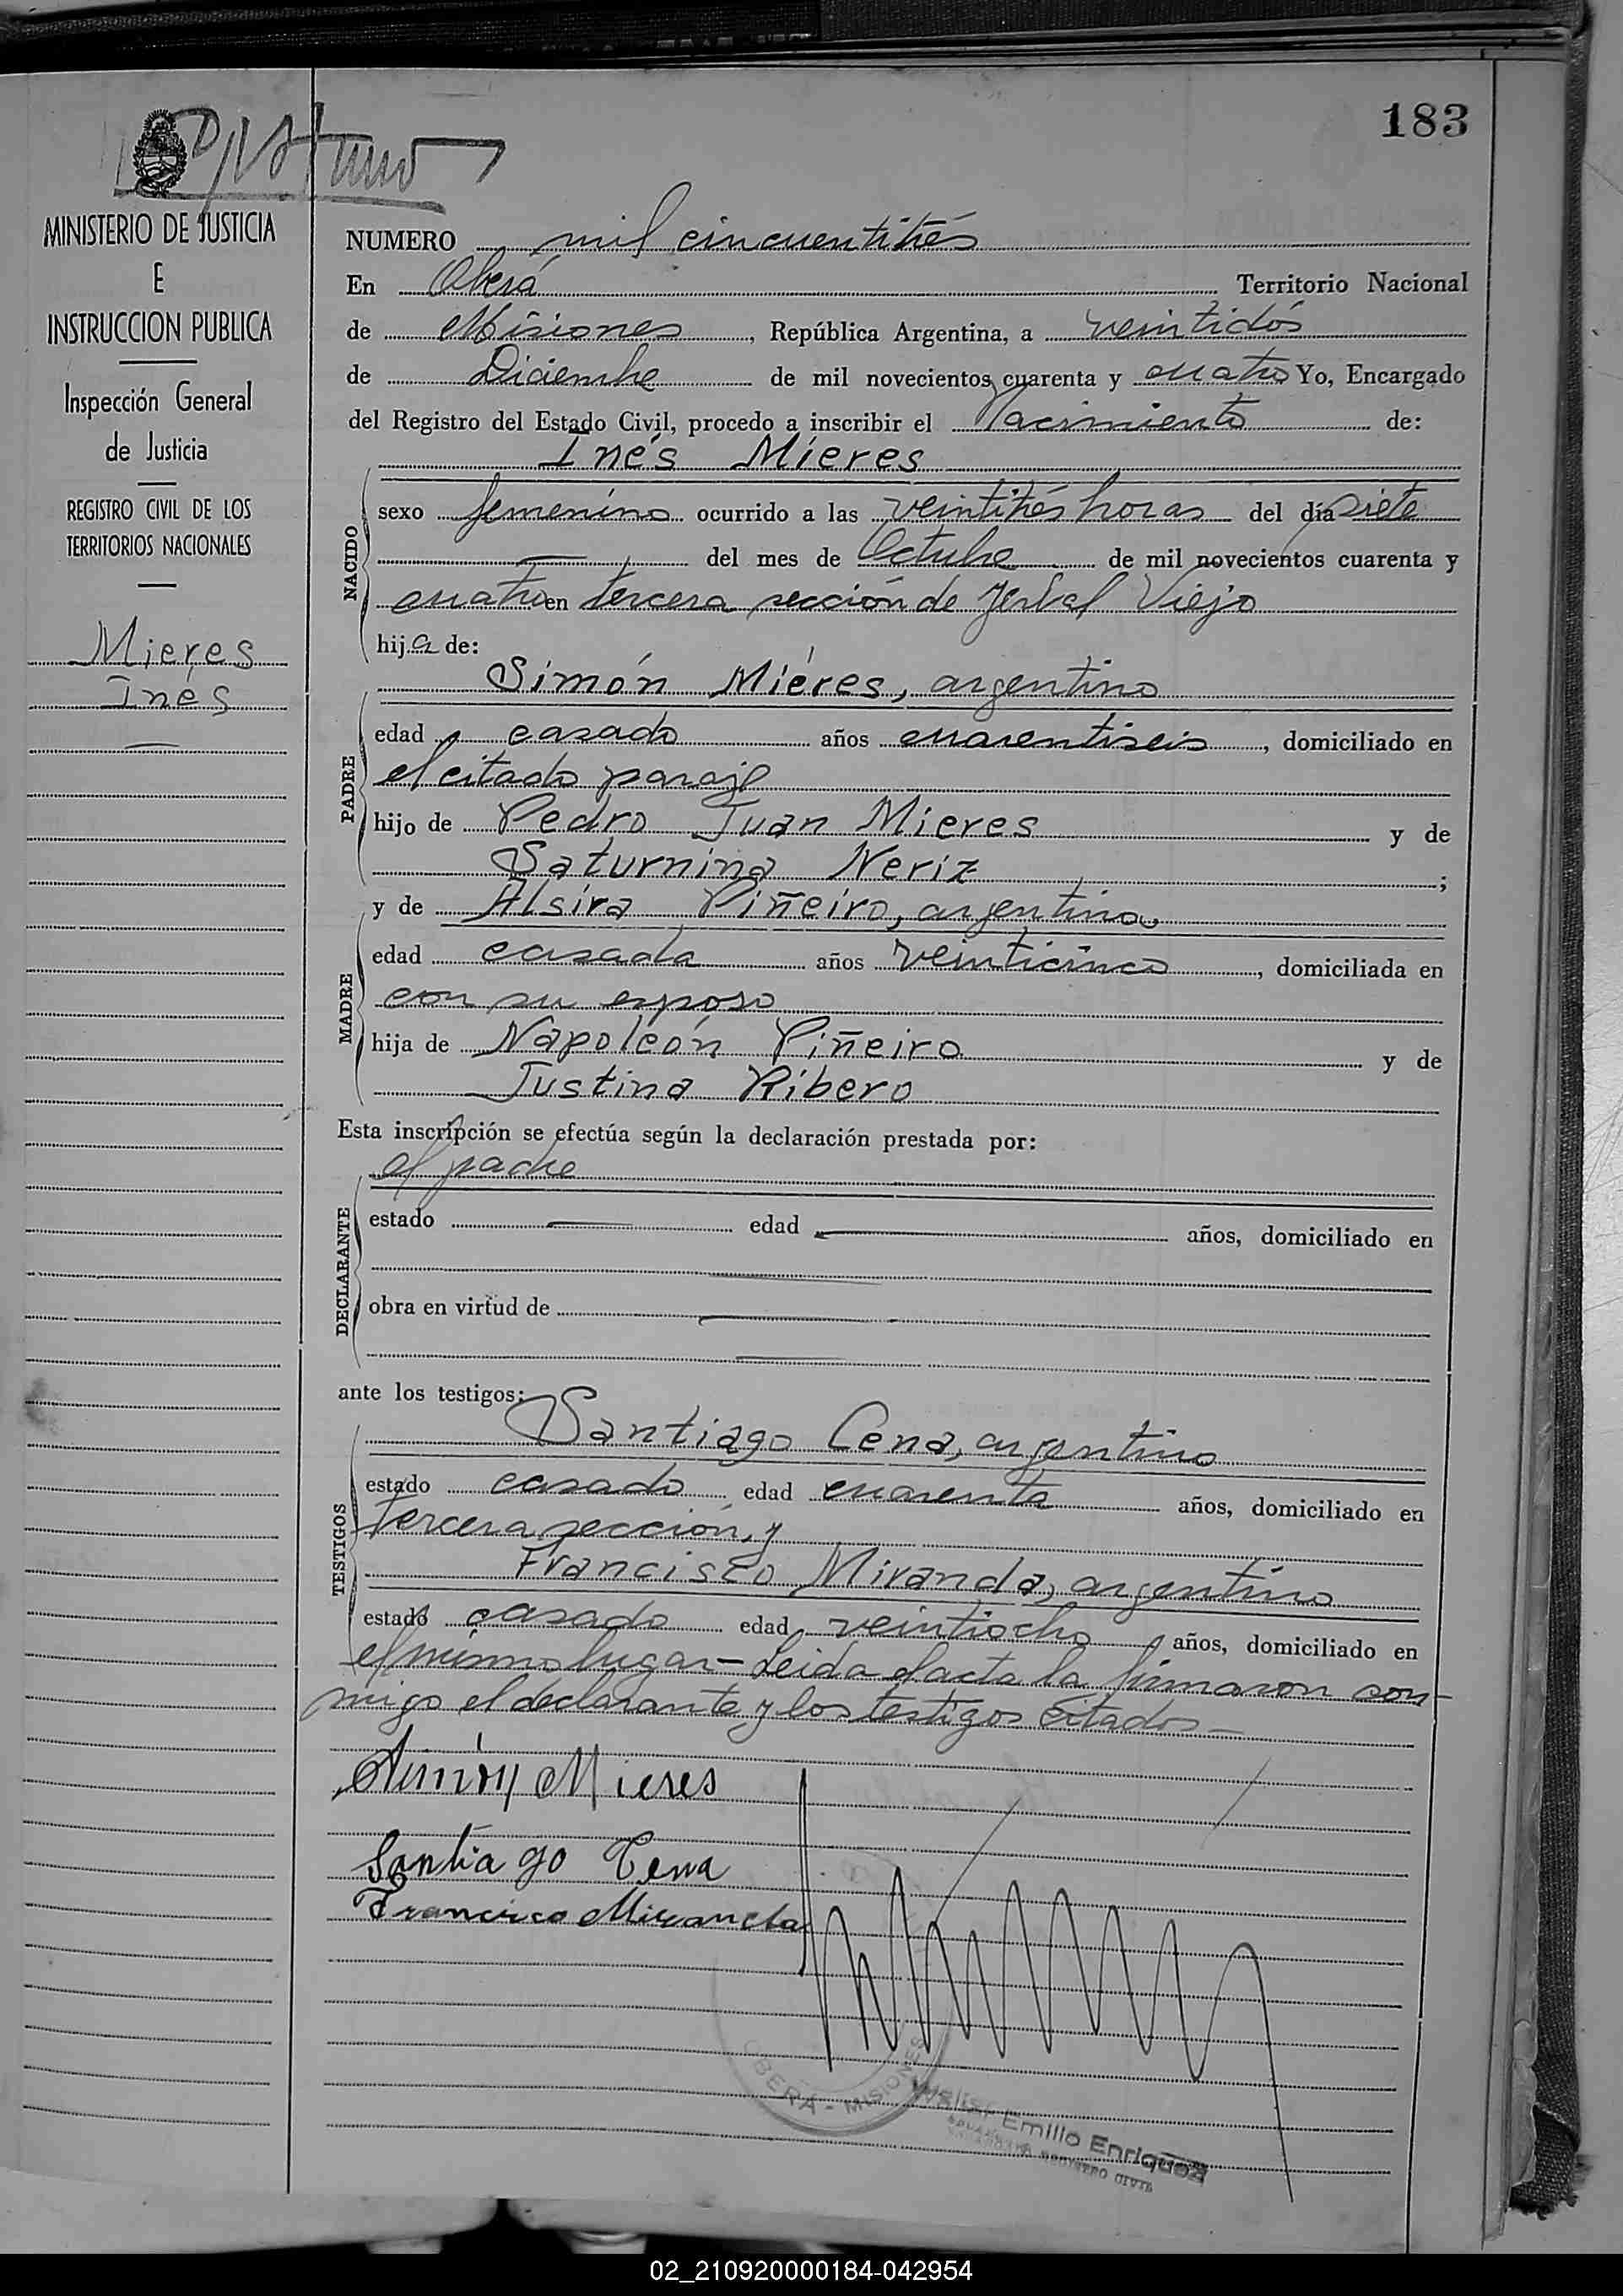 183
MINISTERIO DE JUSTICIA
E
INSTRUCCION PUBLICA
Inspección General
de Justicia
REGISTRO CIVIL DE LOS
TERRITORIOS NACIONALES
Mieres
Inés
NUMERO mil cincuentitrés
En Oberá Territorio Nacional
de Misiones, República Argentina, a veintidós
de Diciembre de mil novecientos cuarenta y cuatro Yo, Encargado
del Registro del Estado Civil, procedo a inscribir el Nacimiento de:
Inés Mieres
NACIDO
sexo femenino ocurrido a las veintitrés horas del día siete
del mes de Octubre de mil novecientos cuarenta y
cuatro en tercera sección de Yerbal Viejo
hija de:
Simón Mieres, argentino
PADRE
edad casado años cuarentiseis, domiciliado en
el citado paraje
hijo de Pedro Juan Mieres y de
Saturnina Neriz ;
y de Alsira Piñeiro, argentina,
MADRE
edad casada años veinticinco, domiciliada en
con su esposo
hija de Napoleón Piñeiro y de
Justina Ribero
Esta inscripción se efectúa según la declaración prestada por:
el padre
DECLARANTE
estado edad años, domiciliado en
obra en virtud de
ante los testigos:
Santiago Cena, argentino
TESTIGOS
estado casado edad cuarenta años, domiciliado en
tercera sección, y
Francisco Miranda, argentino
estado casado edad veintiocho años, domiciliado en
el mismo lugar - Leida el acta la firmaron con-
migo el declarante y los testigos citados -
Simón Mieres
Santiago Cena
Francisco Miranda
OBERÁ - MISIONES
Emilio Enriquez
REGISTRO CIVIL
02_210920000184-042954